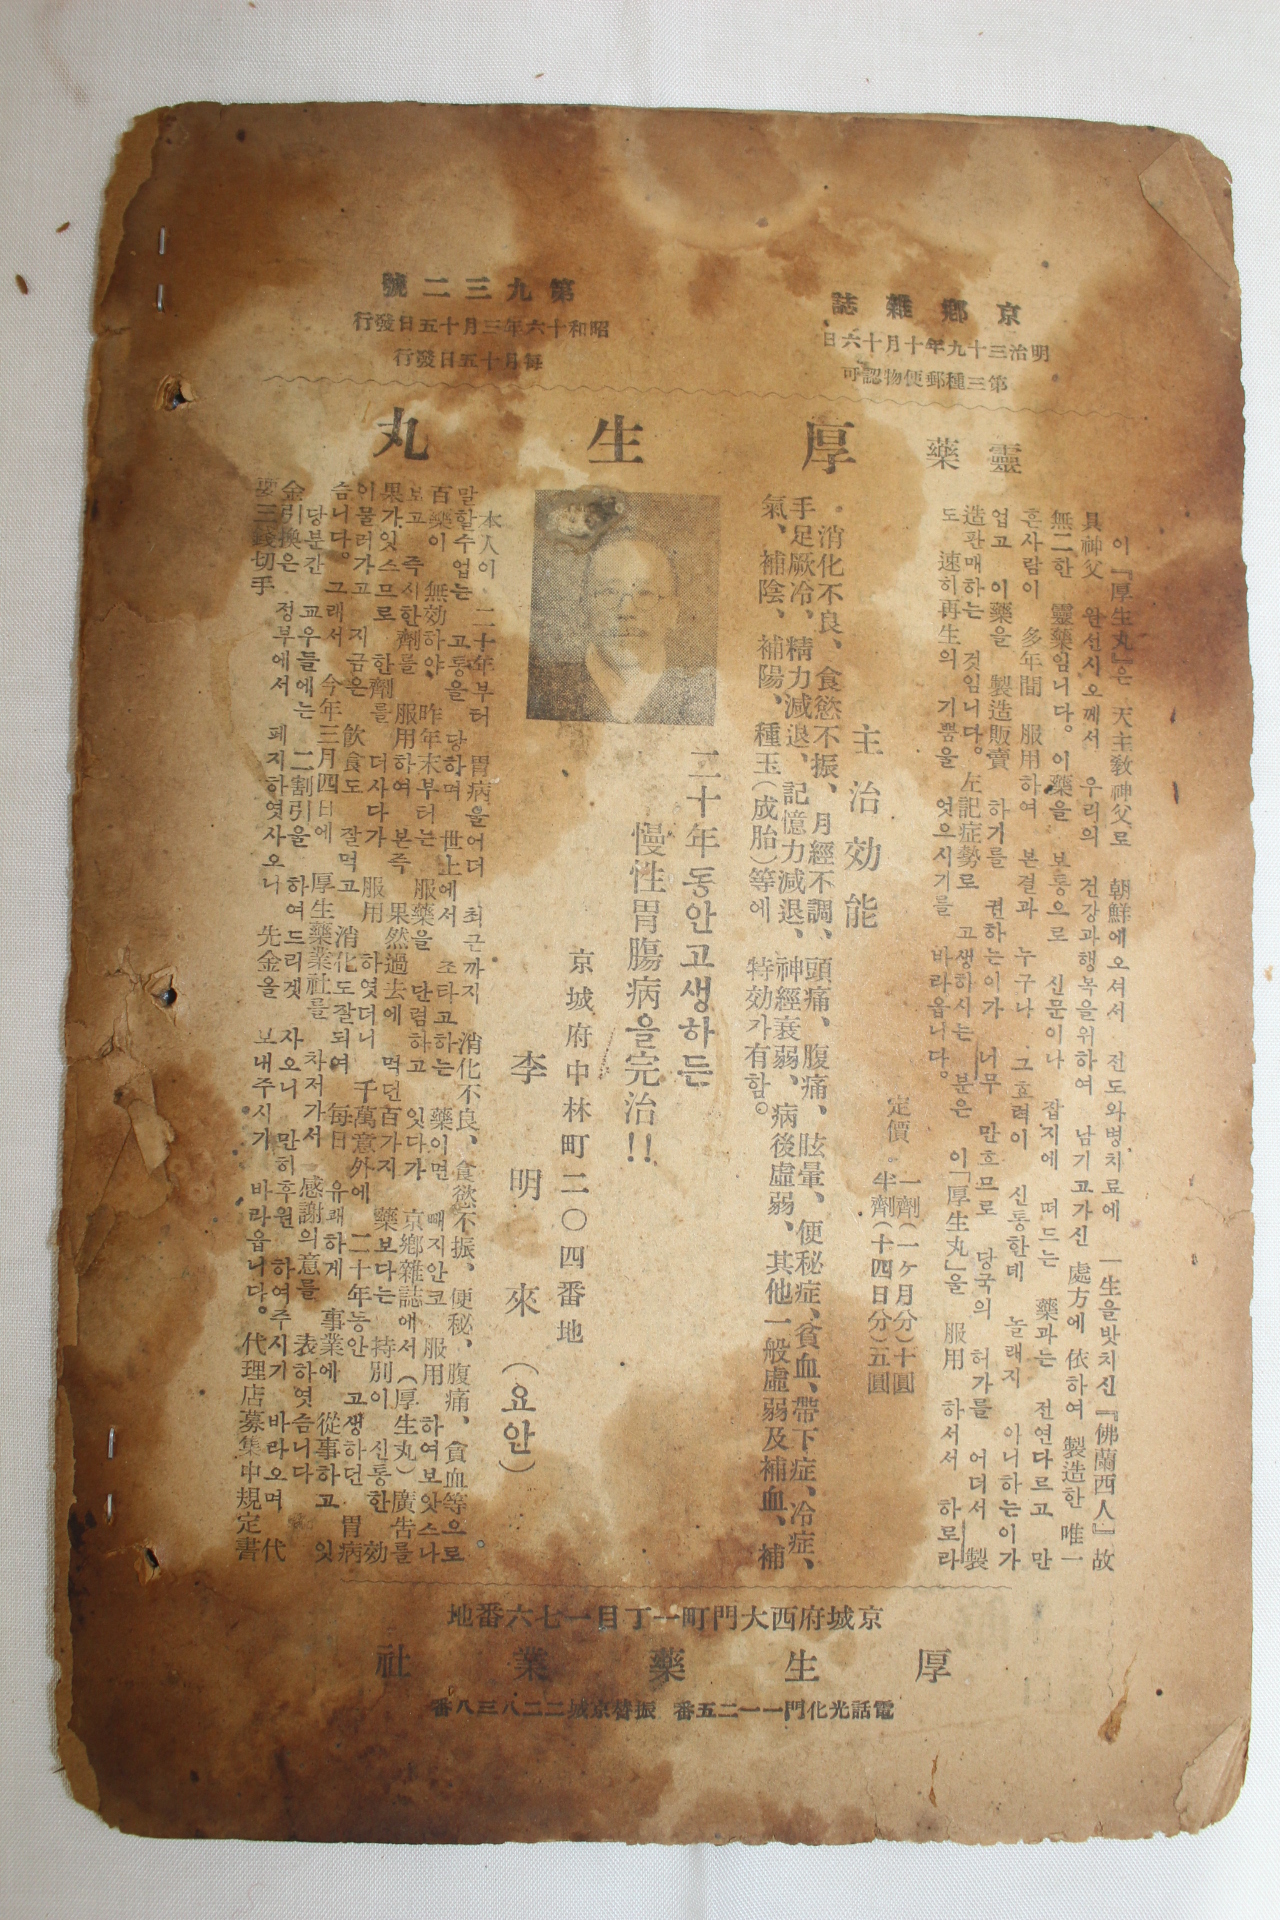 京鄕雜誌
明治三十九年十月十六日
第三種郵便物認可
第九三二號
昭和十六年三月十五日發行
每月十五日發行
靈藥 厚生丸
이『厚生丸』은 天主敎神父로 朝鮮에오셔서 전도와병치료에 一生을밧치신『佛蘭西人』故
具神父 원선시오께서 우리의 건강과행복을위하여 남기고가신 處方에 依하여 製造한 唯一
無二한 靈藥임니다。이藥을 보통으로 신문이나 잡지에 떠드는 藥과는 전연다르고 만
흔사람이 多年間 服用하여 본결과 누구나 그효력이 신통한데 놀래지 아니하는이가
업고 이藥을 製造販賣 하기를 권하는이가 너무 만흐므로 당국의 허가를 어더서 製
造판매하는 것임니다。左記症勢로 고생하시는 분은 이「厚生丸」을 服用 하서서 하로라
도 速히再生의 기쁨을 엇으시기를 바라옵니다。
定價 一劑(一ヶ月分)十圓
半劑(十四日分)五圓
主治効能
消化不良、食慾不振、月經不調、頭痛、腹痛、眩暈、便秘症、貧血、帶下症、冷症、
手足厥冷、精力減退、記憶力減退、神經衰弱、病後虛弱、其他一般虛弱及補血、補
氣、補陰、補陽、種玉(成胎)等에 特効가有함。
二十年동안고생하든
慢性胃腸病을完治!!
京城府中林町二〇四番地
李明來(요안)
本人이 二十年부터 胃病을어더 최근까지 消化不良、食慾不振、便秘、腹痛、貧血等으로
말할수업는 고통을 당하며 世上에서 조타고하는 藥이면 빼지안코 服用 하여보앗스나
百藥이 無効하야、昨年末부터는 服藥을 단렴하고 잇다가 京鄕雜誌에서(厚生丸)廣告를
보고 즉시한劑를 服用하여 본즉 果然過去에 먹던百가지 藥보다는 特別이 신통한 効
果가잇스므로 한劑를 더사다가 服用 하엿더니 千萬意外에 二十年동안 고생하던 胃病
이물러가고 지금은 飮食도 잘먹고 消化도잘되여 每日 유쾌하게 事業에 從事하고 잇
슴니다。그래서 今年三月四日에 厚生藥業社를 차저가서 感謝의意를 表하엿슴니다
당분간 교우들에는 二割引을 하여드리겟 사오니 만히후원 하여주시기 바라오며 代
金引換은 정부에서 폐지하엿사오니 先金을 보내주시기 바라옵니다。代理店募集中規定書
要三錢切手
京城府西大門町一丁目一七六番地
厚生藥業社
電話光化門一一二五番 振替京城二二八三八番